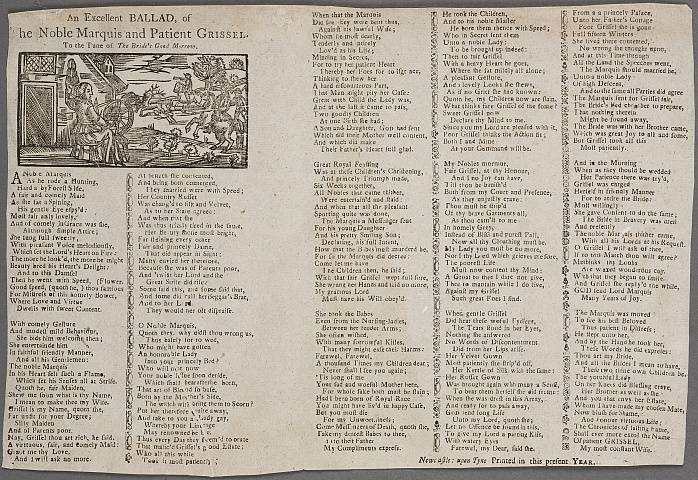 An Excellent BALLAD, of
he Noble Marquis and Patient GRISSEL.
To the Tune of The Bride's Good Morrow.
A Noble Marquis
As he rode a Hunting,
Hard by Forest Side,
A fair and comely Maid
As she sat a Spinning,
His gentle Eye espy'd:
Most fair and lovely,
And of comely Grace was she,
Although simple Attire;
She sung full sweetly,
With pleasant Voice melodiously,
Which set the Lord's Heart on Fire:
The more he look'd, the more he might
Beauty bred his Heart's Delight:
And to this Damsel
Then he went with Speed,
Good speed, (quoth he,) thou famous
For Mistress of this homely Bower,
Where Love and Virtue
Dwells with sweet Content.
With comely Gesture
And modest mild Behaviour,
She bids him welcome then;
She entertain'd him
In faithful friendly Manner,
And all his Gentlemen:
The noble Marquis
In his Heart felt such a Flame,
Which set his Senses all at Strife.
Quoth he, fair Maiden,
Shew me soon what is thy Name,
I mean to make thee my Wife.
Grissel is my Name, quoth she,
Far unfit for your Degree;
A silly Maiden
And of Parents poor.
Nay, Grissel thou art rich, he said,
A virtuous, fair, and comely Maid:
Grant me thy Love,
And I will ask no more.
At length she consented,
And being both contented,
They married were with Speed;
Her Country Russet
Was chang'd to silk and Velvet,
As to her State agreed:
And when that she
Was thus trimly tired in the same,
Her Beauty shone most bright,
Far staining every other
Fair and princely Dame,
That did appear in Sight:
Many envied her therefore,
Because she was of Parents poor,
And 'twixt her Lord and she
Great Strife did rise:
Some said this, and some said that,
And some did call her Beggar's Brat,
And to her Lord
They would her oft despise.
O Noble Marquis,
Quoth they, why dost thou wrong us,
Thus basely for to wed,
Who might have gotten
An honorable Lady
Into your princely Bed?
Who will not now
Your noble Issue then deride,
Which shall hereafter be born,
That are of Blood so base,
Born by the Mother's Side,
The which will bring them to Scorn?
Put her therefore quite away,
And take to you a Lady gay,
Whereby your Lineage
May renowned be
Thus every Day they seem'd to prate
That malic'd Grissel's good Estate;
Who all this while
Took it most patiently.
When that the Marquis
Did see they were bent thus,
Against his lawful Wife;
Whom he most dearly,
Tenderly and nicely
Lov'd as his Life;
Minding in Secret,
For to try her patient Heart
Thereby her Foes for to disgrace,
Thinking to shew her
A hard discourteous Part,
That Men might pity her Case:
Great with Child the Lady was,
And at the last it came to pass,
Two goodly Children
At one Birth she had;
A Son and Daughter, God had sent
Which did their Mother well content,
And which did make
Their Father's Heart full glad.
Great Royal Feasting
Was at these Children's Christening,
And princely Triumph made,
Six Weeks together,
All Nobles that came thither,
Were entertain'd and staid:
And when that all the pleasant
Sporting quite was done,
The Marquis a Messenger sent
For his young Daughter
And his pretty smiling Son;
Declaring, his full Intent,
How that the Babes must murdered be,
For so the Marquis did decree:
Come let me have
The Children then, he said,
With that fair Grissel wept full sore,
She wrung her Hands and said no more,
My gracious Lord
Must have his Will obey'd.
She took the Babes
Even from the Nursing-Ladies,
Between her tender Arms;
She often wished,
With many sorrowful Kisses,
That they might ease their Harms:
Farewel, Farewel,
A thousand Times my Children dear;
Never shall I see you again;
'Tis long of me
Your sad and woeful Mother here,
For whose Sake both must be slain;
Had I been born of Royal Race
You might have liv'd in happy Case,
But you must die
For my Unworthiness;
Come Messengers of Death, quoth she,
Take my dearest Babes to thee,
And to their Father
My Complaints express.
He took the Children,
And to his noble Master
He bore them thence with Speed;
Who in Secret sent them
Unto a noble Lady;
To be brought up indeed:
Then to fair Grissel
With a heavy Heart he goes,
Where she sat mildly all alone;
A pleasant Gesture,
And a lovely Look she shews,
As if no Grief she had known:
Quoth he, my Children now are slain,
What thinks fair Grissel of the same?
Sweet Grissel now
Declare thy Mind to me.
Since you my Lord are pleased with it,
Poor Grissel thinks the Action fit;
Both I and Mine
At your Command will be.
My Nobles murmur,
Fair Grissel, at thy Honour,
And I no Joy can have,
Till thou be banish'd
Both from my Court and Presence,
As they unjustly crave:
Thou must be stripp'd
Of thy brave Garments all,
As thou cam'st to me
In homely Grey,
Instead of Bliss and purest Pall,
Now all thy Cloathing must be,
My Lady you must be no more,
Nor I thy Lord which grieves me sore,
The poorest Life
Must now content thy Mind:
A Groat to thee I dare not give,
Thee to mantain while I do live,
Against my Grissel
Such great Foes I find.
When gentle Grissel
Did hear these woeful Tydings,
The Tears stood in her Eyes,
Nothing she answered
No Words of Discontentment
Did from her Lips arise.
Her Velvet Gown
Most patiently she stripp'd off,
Her Kirtle of Silk with the same:
Her Russet Gown
Was brought again with many a Scoff,
To bear them herself she did frame:
When she was drest in this Array,
And ready for to pass away,
God send long Life
Unto my Lord, quoth she;
Let no Offence be found in this,
To give my Lord a parting Kiss,
With watery Eyes
Farewel, my Dear, said she.
From a princely Palace,
Unto her Father's Cottage
Poor Grissel she is gone:
Full fifteen Winters
She lived there contented,
No wrong she thought upon,
And at this Time through
All the Land the Speeches went,
The Marquis should married be,
Unto a noble Lady
Of high Descent,
And to the same all Parties did agree
The Marquis sent for Grissel fair,
The Bride's Bed she had to prepare,
That nothing therein
Might be found awry.
The Bride was with her Brother came,
Which was great Joy to all and some,
But Grissel took all this
Most patiently.
And in the Morning
When as they should be wedded
Her Patience there was try'd,
Grissel was charged
Herself in friendly Manner
For to attire the Bride:
Most willingly
She gave Consent to do the same;
The Bride in Bravery was drest
And presently
The noble Marquis thither came,
With all his Lords at his Request.
O! Grissel I will ask of thee,
If to this Match thou wilt agree?
Methinks thy Looks
Are waxed wondrous coy.
With that they began to smile,
And Grissel she reply'd the while,
GOD send Lord Marquis
Many Years of Joy.
The Marquis was moved
To see his best Beloved
Thus patient in Distress;
He stept unto her,
And by the Hand he took her,
These Words he did express:
Thou art my Bride,
And all the Brides I mean to have,
These two thine own Children be.
The youthful Lady
On her Knees did Blessing crave,
Her Brother as well as she
And you that envy her Estate,
Whom I have made my chosen Mate,
Now blush for Shame,
And honour virtuous Life;
The Chronicles of lasting Fame,
Shall ever more extol the Name
Of patient GRISSEL,
My most constant Wife.
Newcastle: upon Tyne Printed in this present YEAR.